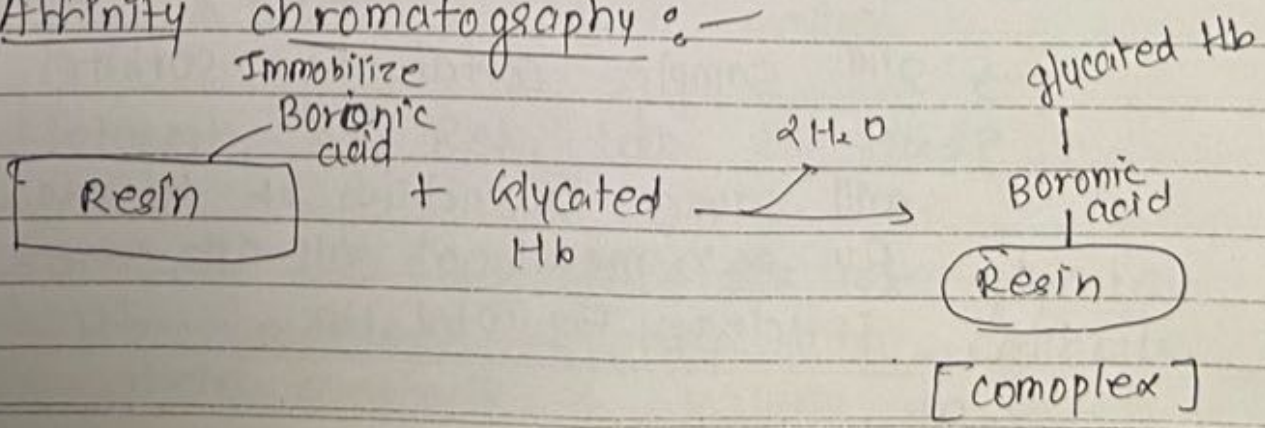 Affinity chromatography :—
Immobilize
Borionic
acid
glycated Hb
Resin
+ Glycated
Hb
2H₂O
Boronic
acid
Resin
[comoplex]